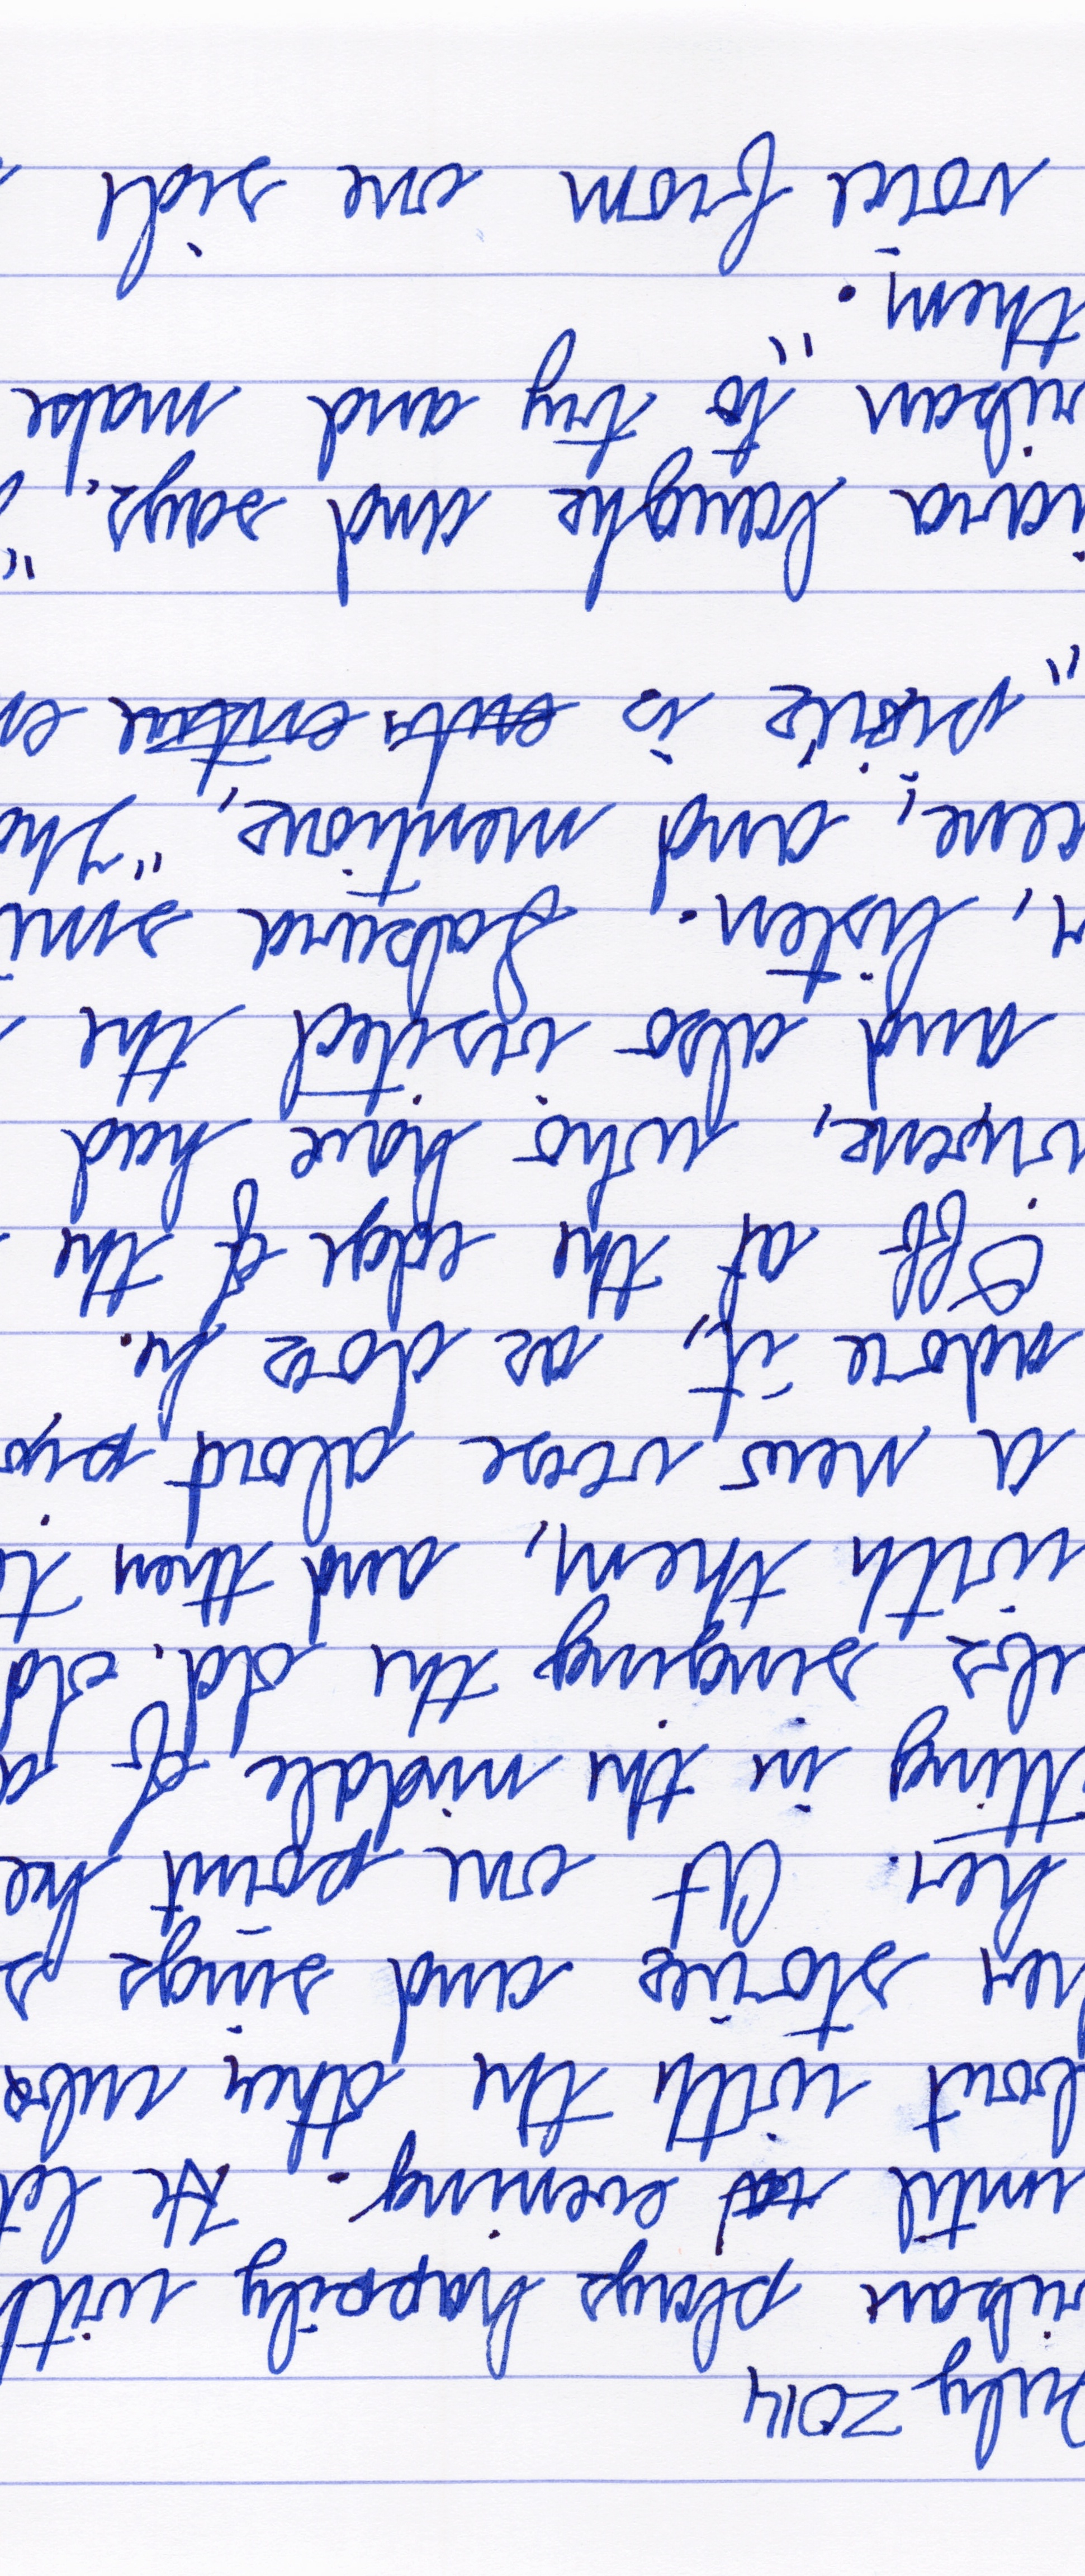 July 2014
riban plays happily with
until evening. He let
bout with the other cubs
her stories and sings s
her. At one point he
tting in the middle of a
ubs singing the old, old
with them, and then t
a new verse about pip
adore it, as does he.
Off at the edge of the
vixens, who have had
and also visited the
n, listen. Sakura smi
cene, and mentions, "The
picnic is
"
iana laughs and says, "
riban "to try and make
them."
voice from one side